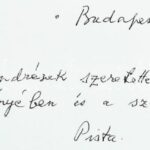 Budapes
ndrének szeretette
nyében és a sz
Pista.